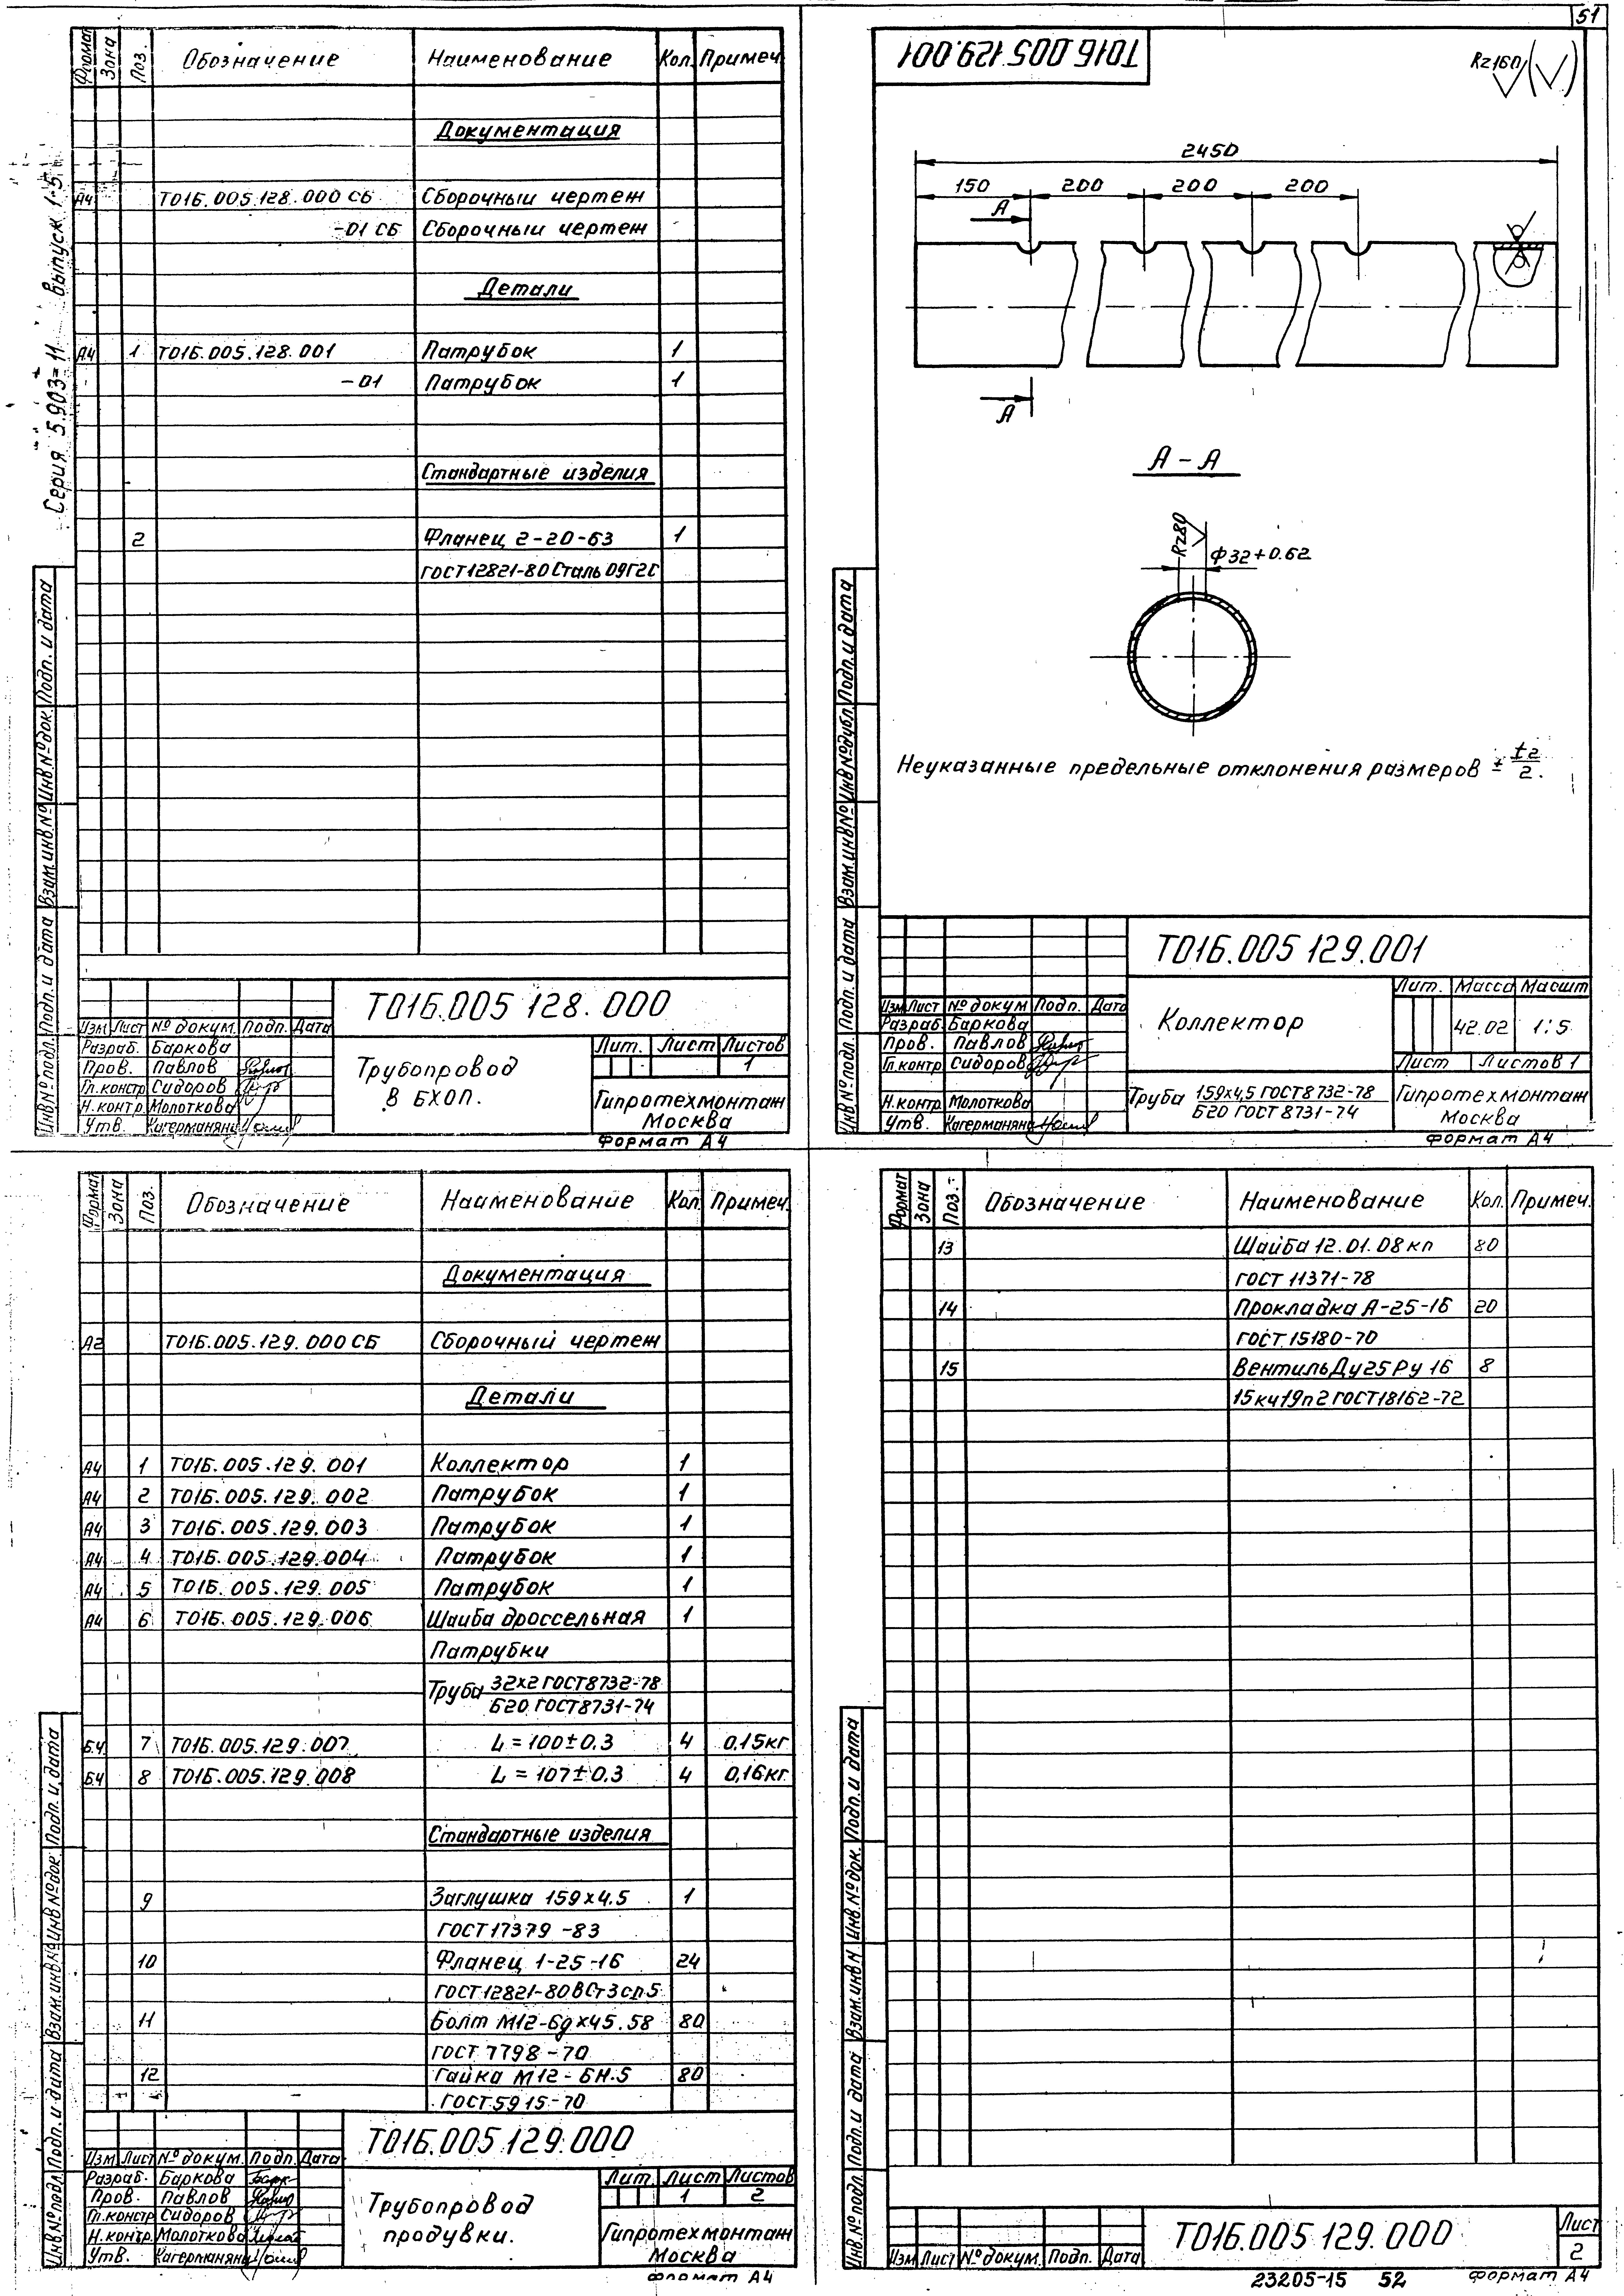 51
Серия 5.903-11 Выпуск 1-5
Формат Зона Поз. Обозначение Наименование Кол. Примеч.
Документация
А4 Т01Б.005.128.000 СБ Сборочный чертеж
-01 СБ Сборочный чертеж
Детали
А4 1 Т01Б.005.128.001 Патрубок 1
-01 Патрубок 1
Стандартные изделия
2 Фланец 2-20-63 1
ГОСТ 12821-80 Сталь 09Г2С
Инв № подл. Подп. и дата Взам.инв.№ Инв № док. Подп. и дата
Т01Б.005 128.000
Изм Лист № докум. Подп. Дата
Разраб. Баркова
Пров. Павлов
Гл.констр Сидоров
Н.контр. Молоткова
Утв. Кагерманян
Трубопровод
в БХОП.
Лит. Лист Листов
1
Гипротехмонтаж
Москва
Формат А4
Т01Б 005 129.001
Rz160
2450
150 200 200 200
А
А
А - А
Rz80
Ф32+0.62
Неуказанные предельные отклонения размеров ± t2/2.
Инв № подл. Подп. и дата Взам.инв № Инв.№ дубл. Подп. и дата
Т01Б.005 129.001
Изм Лист № докум Подп. Дата
Разраб. Баркова
Пров. Павлов
Гл.контр Сидоров
Н.контр. Молоткова
Утв. Кагерманян
Коллектор
Лит. Масса Масшт
42.02 1:5
Лист Листов 1
Труба 159х4,5 ГОСТ 8732-78
Б20 ГОСТ 8731-74
Гипротехмонтаж
Москва
Формат А4
Формат Зона Поз. Обозначение Наименование Кол. Примеч.
Документация
А2 Т01Б.005.129.000 СБ Сборочный чертеж
Детали
А4 1 Т01Б.005.129.001 Коллектор 1
А4 2 Т01Б.005.129.002 Патрубок 1
А4 3 Т01Б.005.129.003 Патрубок 1
А4 4 Т01Б.005.129.004 Патрубок 1
А4 5 Т01Б.005.129.005 Патрубок 1
А4 6 Т01Б.005.129.006 Шайба дроссельная 1
Патрубки
Труба 32х2 ГОСТ 8732-78
Б20 ГОСТ 8731-74
Б.Ч 7 Т01Б.005.129.007 L = 100±0.3 4 0,15кг
Б.Ч 8 Т01Б.005.129.008 L = 107±0.3 4 0,16кг
Стандартные изделия
9 Заглушка 159х4.5 1
ГОСТ 17379-83
10 Фланец 1-25-16 24
ГОСТ 12821-80 ВСт3сп5
11 Болт М12-6gх45.58 80
ГОСТ 7798-70
12 Гайка М12-6Н.5 80
ГОСТ 5915-70
Инв № подл. Подп. и дата Взам.инв № Инв № док. Подп. и дата
Т01Б.005 129.000
Изм. Лист № докум. Подп. Дата
Разраб. Баркова
Пров. Павлов
Гл.констр Сидоров
Н.контр. Молоткова
Утв. Кагерманян
Трубопровод
продувки.
Лит. Лист Листов
1 2
Гипротехмонтаж
Москва
Формат А4
Формат Зона Поз. Обозначение Наименование Кол. Примеч.
13 Шайба 12.01.08кп 80
ГОСТ 11371-78
14 Прокладка А-25-16 20
ГОСТ 15180-70
15 Вентиль Ду25 Ру 16 8
15кч19п2 ГОСТ 18162-72
Инв № подл. Подп. и дата Взам.инв № Инв.№ док. Подп. и дата
Т01Б.005 129.000
Лист
2
Изм Лист № докум. Подп. Дата
23205-15 52 Формат А4